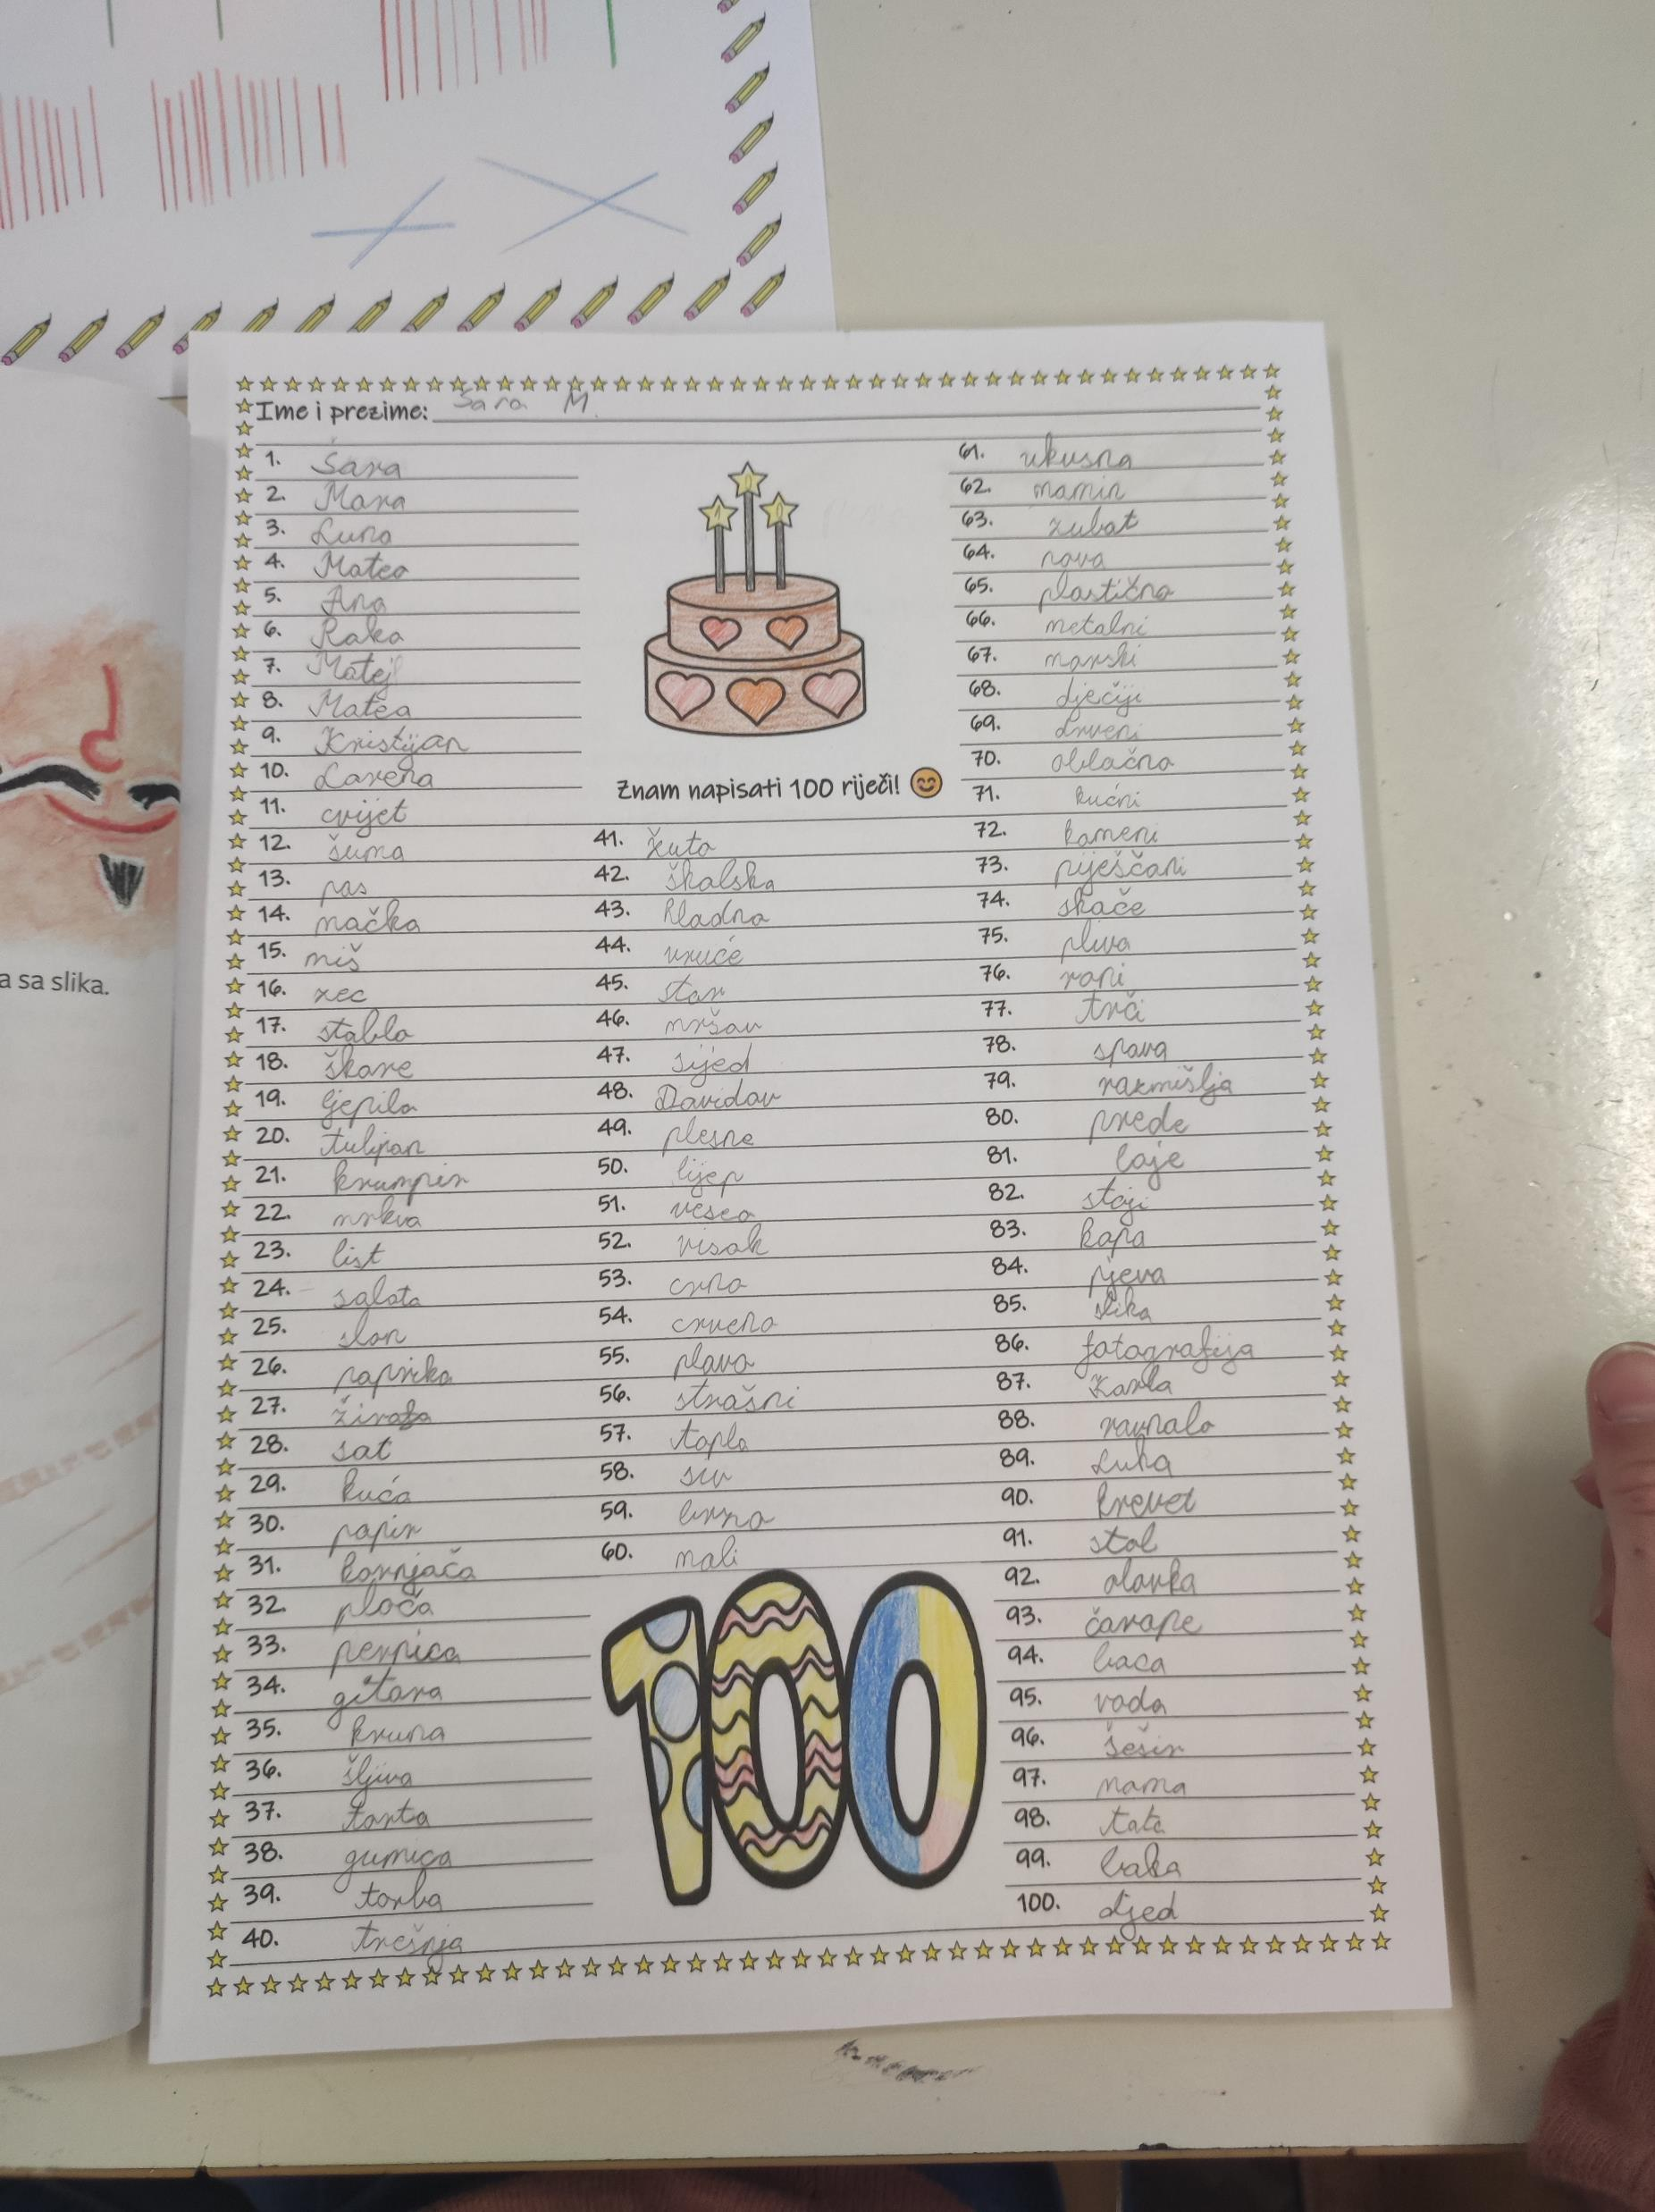 Ime i prezime: Sara M.
1. Sara
2. Mara
3. Luna
4. Mateo
5. Ana
6. Roko
7. Matej
8. Matea
9. Kristijan
10. Lorena
11. cvijet
12. šuma
13. pas
14. mačka
15. miš
16. zec
17. stablo
18. škare
19. ljepilo
20. tulipan
21. krumpir
22. mrkva
23. list
24. salata
25. slon
26. paprika
27. žirafa
28. sat
29. kuća
30. papir
31. kornjača
32. ploča
33. pernica
34. gitara
35. kruna
36. šljiva
37. torta
38. gumica
39. torba
40. trešnja
Znam napisati 100 riječi!
41. žuto
42. školska
43. hladno
44. vruće
45. star
46. mršav
47. sijed
48. Davidov
49. plesne
50. lijep
51. veseo
52. visok
53. crno
54. crveno
55. plavo
56. strašni
57. toplo
58. siv
59. brzo
60. mali
100
61. ukusna
62. mamin
63. zubat
64. nova
65. plastično
66. metalni
67. morski
68. dječiji
69. drveni
70. oblačno
71. kućni
72. kameni
73. piješčani
74. skače
75. pliva
76. roni
77. trči
78. spava
79. razmišlja
80. prede
81. laje
82. stoji
83. kapa
84. pjeva
85. slika
86. fotografija
87. Karla
88. ravnalo
89. Luka
90. krevet
91. stol
92. olovka
93. čarape
94. baca
95. voda
96. šešir
97. mama
98. tata
99. baka
100. djed
a sa slika.